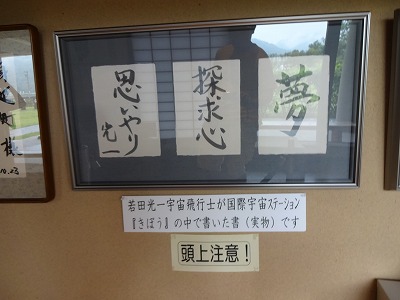 夢
探求心
思いやり
光一
若田光一宇宙飛行士が国際宇宙ステーション
『きぼう』の中で書いた書（実物）です
頭上注意！